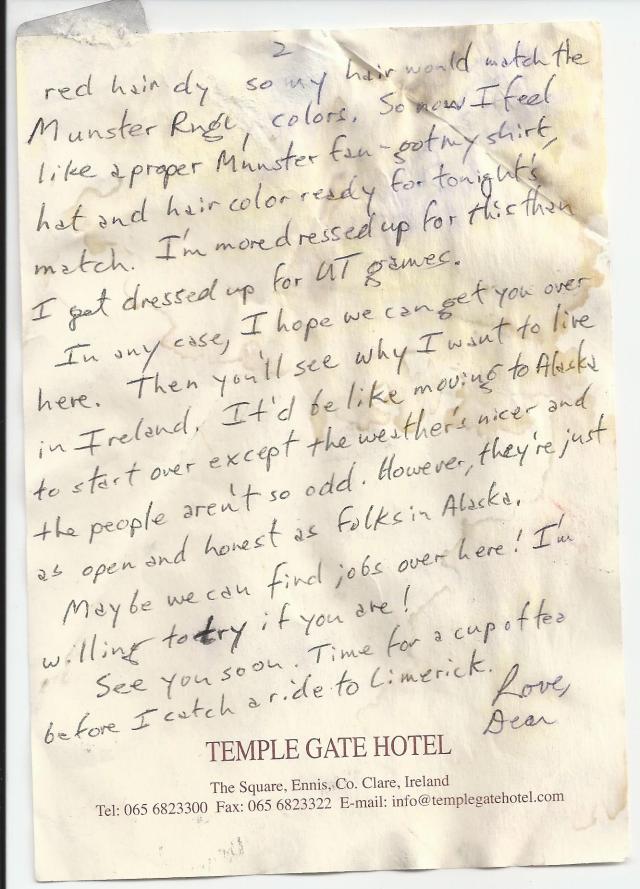 2
red hair dy so my hair would match the
Munster Rugby colors. So now I feel
like a proper Munster fan - got my shirt,
hat and hair color ready for tonight's
match. I'm more dressed up for this than
I get dressed up for UT games.
In any case, I hope we can get you over
here. Then you'll see why I want to live
in Ireland. It'd be like moving to Alaska
to start over except the weather's nicer and
the people aren't so odd. However, they're just
as open and honest as folks in Alaska.
Maybe we can find jobs over here! I'm
willing to try if you are!
See you soon. Time for a cup of tea
before I catch a ride to Limerick.
Love,
Dean
TEMPLE GATE HOTEL
The Square, Ennis, Co. Clare, Ireland
Tel: 065 6823300 Fax: 065 6823322 E-mail: info@templegatehotel.com